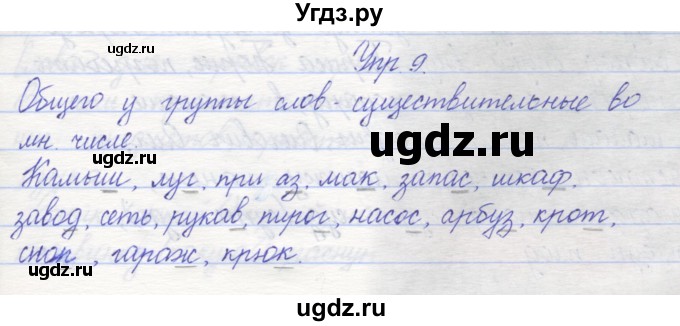 Угдз.ру
Упр 9.
Общего у группы слов - существительные во
мн. числе.
Камыш, луг, при аз, мак, запас, шкаф.
завод, сеть, рукав, пирог, насос, арбуз, крот,
сноп, гараж, крюк.
ugdz.ru
ugdz.ru
ugdz.ru
ugdz.ru
ugdz.ru
ugdz.ru
ugdz.ru
Угдз.ру